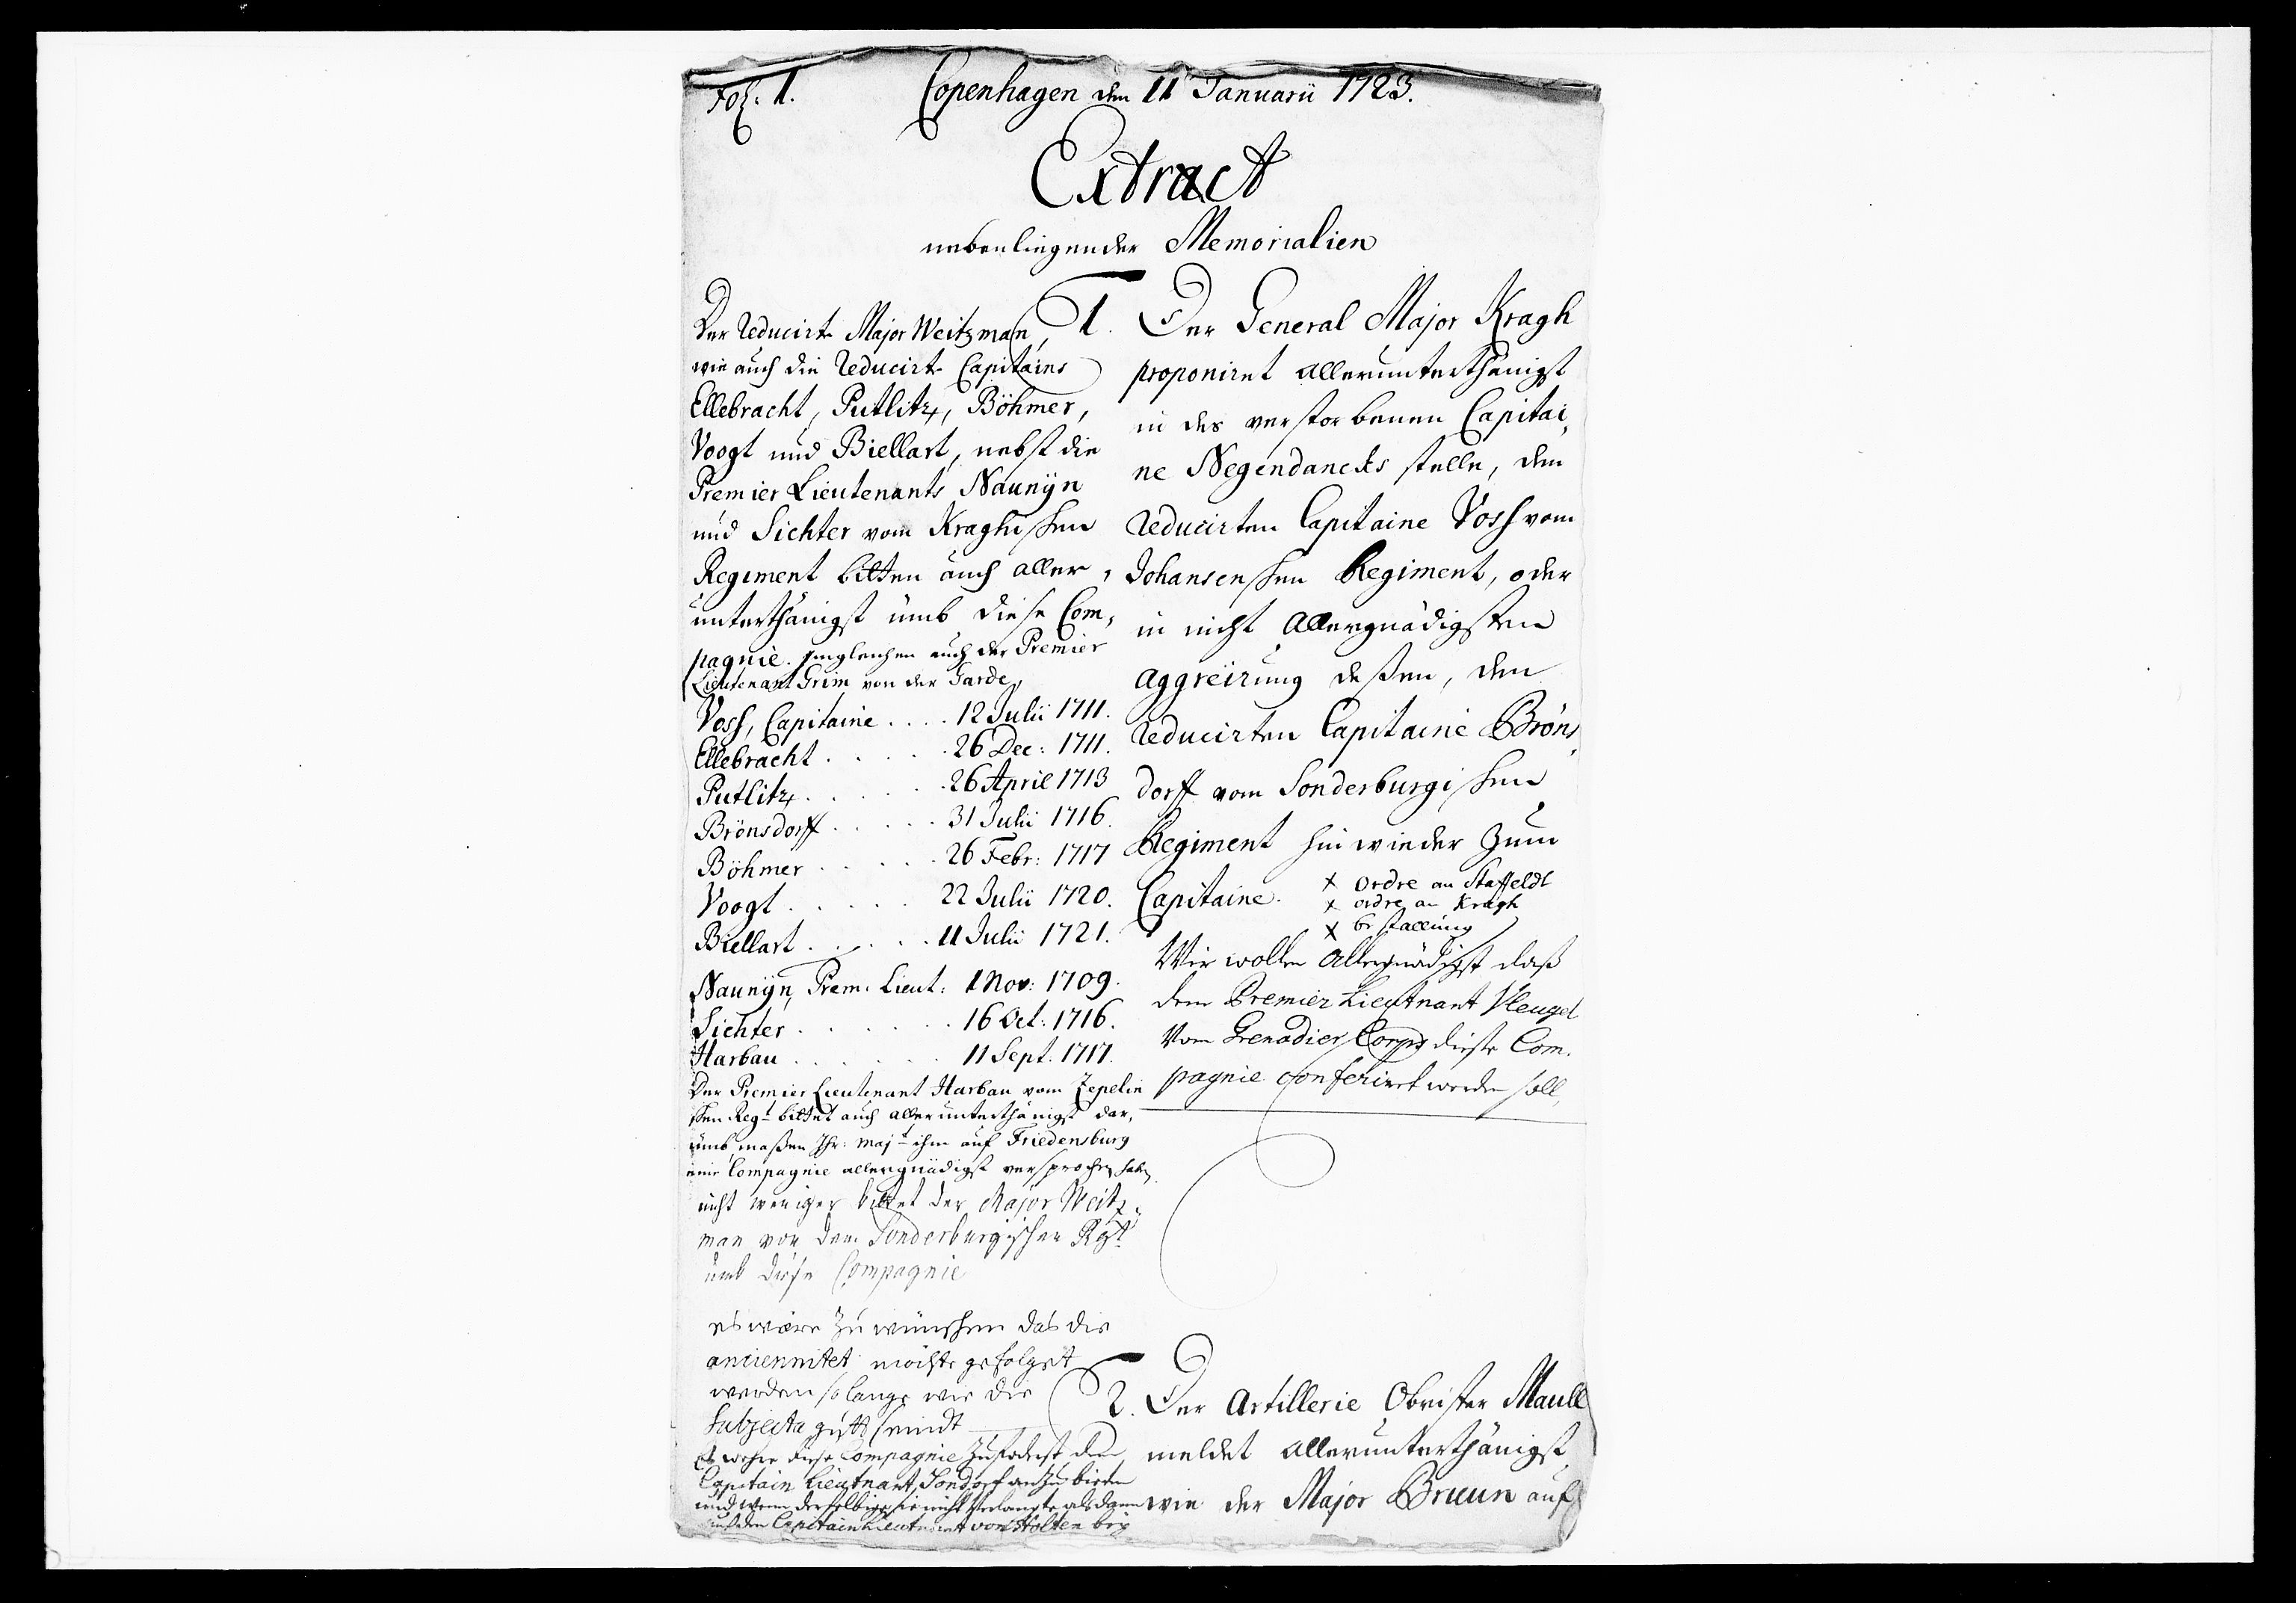 Fol. 1.
Copenhagen den 11 Januarii 1723.
Extract
nebenliegender Memorialien
Der Reducirte Major Weitzman,
wie auch die Reducirte Capitains
Ellebracht, Putlitz, Böhmer,
Voogt und Biellart, nebst die
Premier Lieutenants Naunÿn
und Sichter vom Kraghischen
Regiment bitten auch aller,
unterthänigst umb diese Com,
pagnie. imgleichen auch der Premier
Lieutenant Grim von der Garde,
Voss, Capitaine .... 12 Julii 1711.
Ellebracht ..... 26 Dec: 1711.
Putlitz ...... 26 April 1713
Brönsdorff ..... 31 Julii 1716.
Böhmer ..... 26 Febr: 1717
Voogt ..... 22 Julii 1720.
Biellart ..... 11 Julii 1721.
Naunÿn, Prem. Lieut: 1 Nov: 1709.
Sichter ...... 16 Oct: 1716.
Harbau ...... 11 Sept. 1717.
Der Premier Lieutenant Harbau vom Zepelin
schen Regt bittet auch allerunterthänigst dar,
umb, maßen Ihr: Majt ihm auf Friedensburg
eine Compagnie allergnädigst versprochen haben,
nicht weniger bittet der Major Weitz,
man von dem Sonderburgischen Rgt
umb diese Compagnie
es wäre zu wünschen das die
anciennitet möchte gefolget
werden so lange wie die
Subjecta gutt seindt
Es wehre diese Compagnie zuforderst dem
Capitain Lieutnant Sondorf anzubieten
und wenn derselbige sie nicht verlangte alsdann
auf den Capitain Lieutnant von Holten
1. Der General Major Kragh
proponiret allerunterthänigst
in des verstorbenen Capitai,
ne Negendancks stelle, den
Reducirten Capitaine Voss vom
Johansenschen Regiment, oder
in nicht Allergnädigsten
aggreirung deßen, den
Reducirten Capitaine Bröns,
dorff vom Sonderburgischen
Regiment hinwieder zum
Capitaine.
x ordre an Staffeldt
x ordre an Kragh
x bestallung
Wir wollen Allergnädigst daß
dem Premier Lieutnant Pleugel
Vom Grenadier Corps diese Com.
pagnie conferiret werden soll,
2. Der Artillerie Obrister Maull
meldet allerunterthänigst,
wie der Major Bruun auf